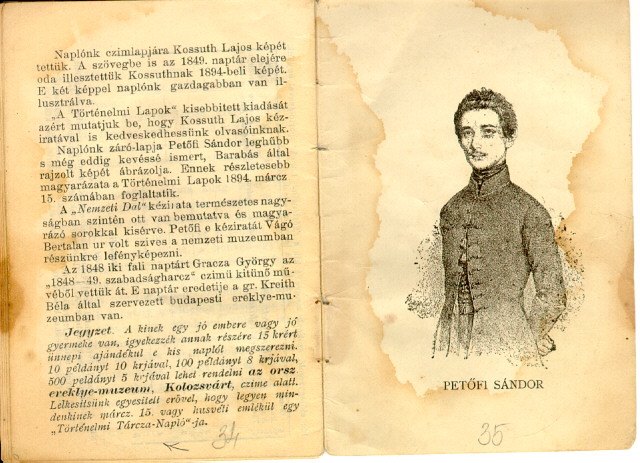 Naplónk czimlapjára Kossuth Lajos képét
tettük. A szövegbe is az 1849. naptár elejére
oda illesztettük Kossuthnak 1894-beli képét.
E két képpel naplónk gazdagabban van il-
lusztrálva.
„A Történelmi Lapok“ kisebbitett kiadását
azért mutatjuk be, hogy Kossuth Lajos kéz-
iratával is kedveskedhessünk olvasóinknak.
Naplónk záró-lapja Petőfi Sándor leghübb
s még eddig kevéssé ismert, Barabás által
rajzolt képét ábrázolja. Ennek részletesebb
magyarázata a Történelmi Lapok 1894. márcz
15. számában foglaltatik.
A „Nemzeti Dal“ kézirata természetes nagy-
ságban szintén ott van bemutatva és magya-
rázó sorokkal kisérve. Petőfi e kéziratát Vágó
Bertalan ur volt szives a nemzeti muzeumban
részünkre lefényképezni.
Az 1848 iki fali naptárt Gracza György az
„1848—49. szabadságharcz“ czimü kitünő mü-
véből vettük át. E naptár eredetije a gr. Kreith
Béla által szervezett budapesti ereklye-mu-
zeumban van.
Jegyzet. A kinek egy jó embere vagy jó
gyermeke van, igyekezzék annak részére 15 krért
ünnepi ajándékul e kis naplót megszerezni.
10 példányt 10 krjával, 100 példányt 8 krjával,
500 példányt 5 krjával lehet rendelni az orsz
ereklye-muzeum, Kolozsvárt, czime alatt.
Lelkesitsünk egyesitett erővel, hogy legyen min-
denkinek márcz. 15. vagy husvéti emlékül egy
„Történelmi Tárcza-Napló“-ja.
34
PETŐFI SÁNDOR
35